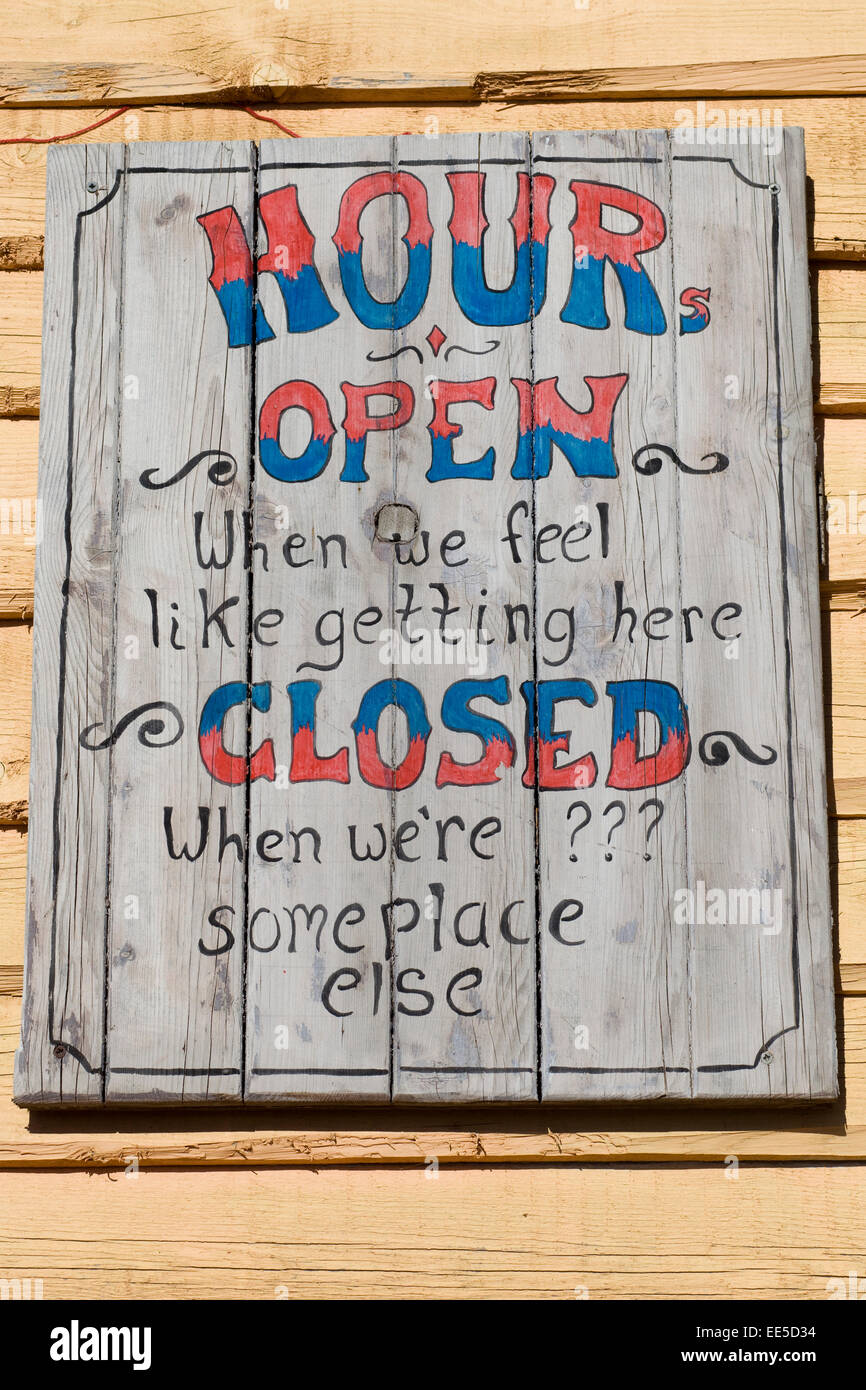 HOURs
OPEN
When we feel
like getting here
CLOSED
When we're ???
someplace
else
alamy
Image ID: EE5D34
www.alamy.com